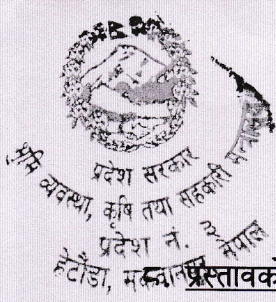 प्रदेश सरकार
भूमि व्यवस्था, कृषि तथा सहकारी मन्त्रालय
प्रदेश नं. ३
हेटौंडा, मकवानपुर नेपाल
प्रस्तावको